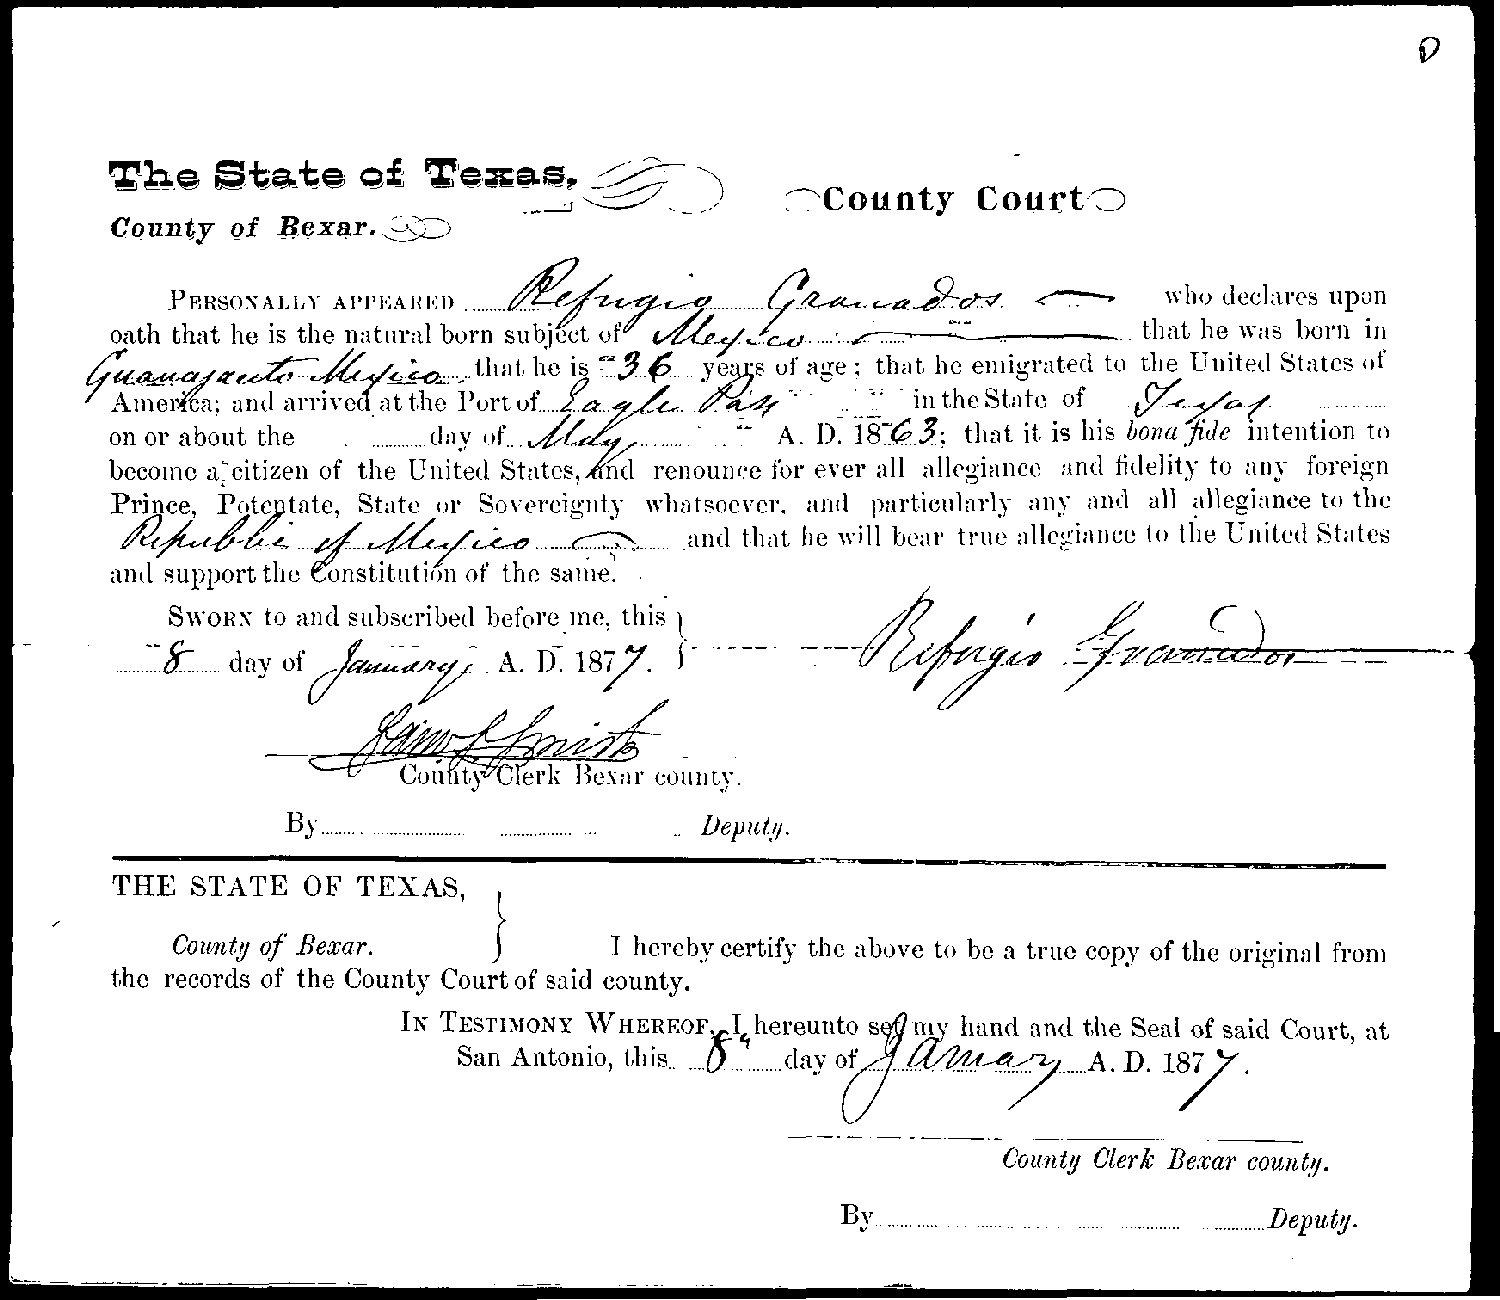 D
The State of Texas,
County Court
County of Bexar.
PERSONALLY APPEARED Refugio Granados who declares upon
oath that he is the natural born subject of Mexico that he was born in
Guanajuato Mexico that he is 36 years of age; that he emigrated to the United States of
America; and arrived at the Port of Eagle Pass in the State of Texas
on or about the day of May A. D. 1863; that it is his bona fide intention to
become a citizen of the United States, and renounce for ever all allegiance and fidelity to any foreign
Prince, Potentate, State or Sovereignty whatsoever, and particularly any and all allegiance to the
Republic of Mexico and that he will bear true allegiance to the United States
and support the Constitution of the same.
SWORN to and subscribed before me, this
8 day of January, A. D. 1877.
Refugio Granados
Sam S Smith
County Clerk Bexar county.
By Deputy.
THE STATE OF TEXAS,
County of Bexar. I hereby certify the above to be a true copy of the original from
the records of the County Court of said county.
IN TESTIMONY WHEREOF, I hereunto set my hand and the Seal of said Court, at
San Antonio, this 8" day of January A. D. 1877.
County Clerk Bexar county.
By Deputy.